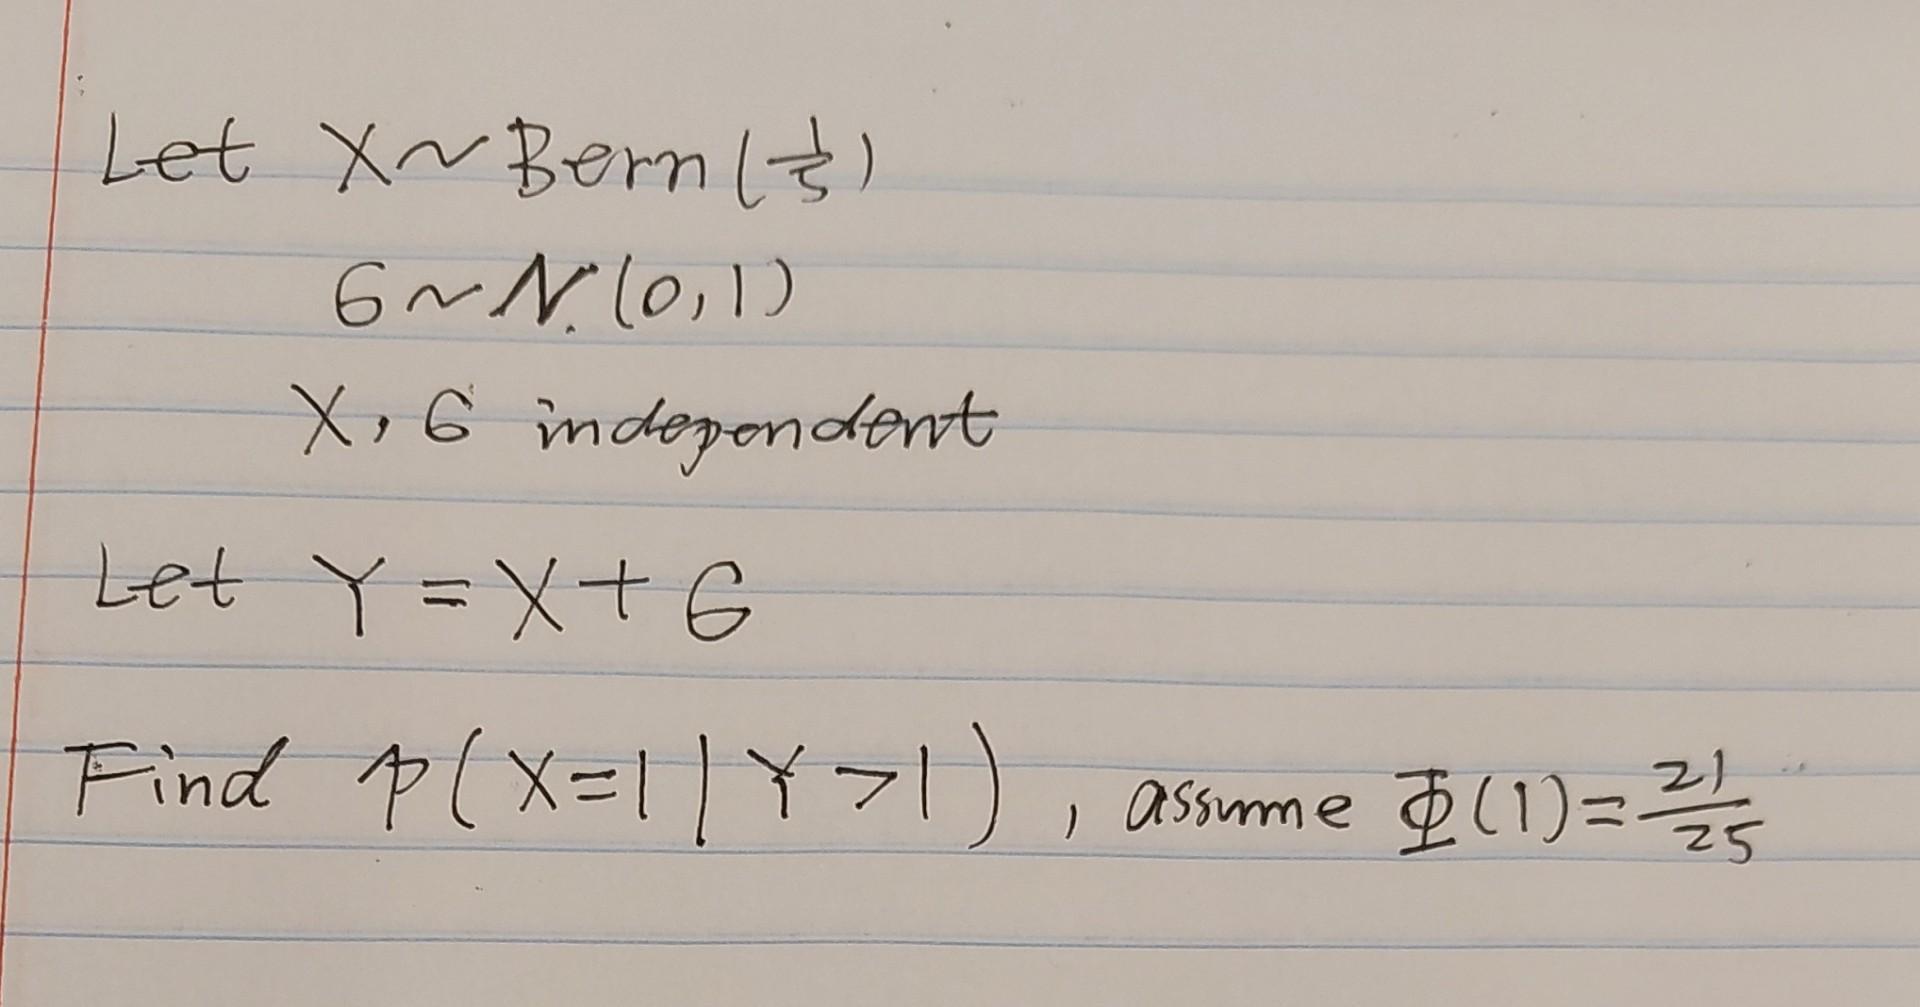 Let X ~ Bern(1/5)
G ~ N(0,1)
X, G independent
Let Y = X + G
Find P(X=1 | Y>1), assume Φ(1) = 21/25